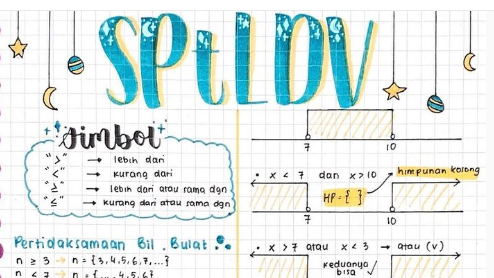 SPtLDV
Simbol
">" → lebih dari
"<" → kurang dari
"≥" → lebih dari atau sama dgn
"≤" → kurang dari atau sama dgn
Pertidaksamaan Bil. Bulat
n ≥ 3 → n = {3,4,5,6,7,...}
n < 7 → n = {...,4,5,6}
7 10
• x < 7 dan x > 10 → himpunan kosong
HP = { }
7 10
• x > 7 atau x < 3 → atau (v)
Keduanya bisa